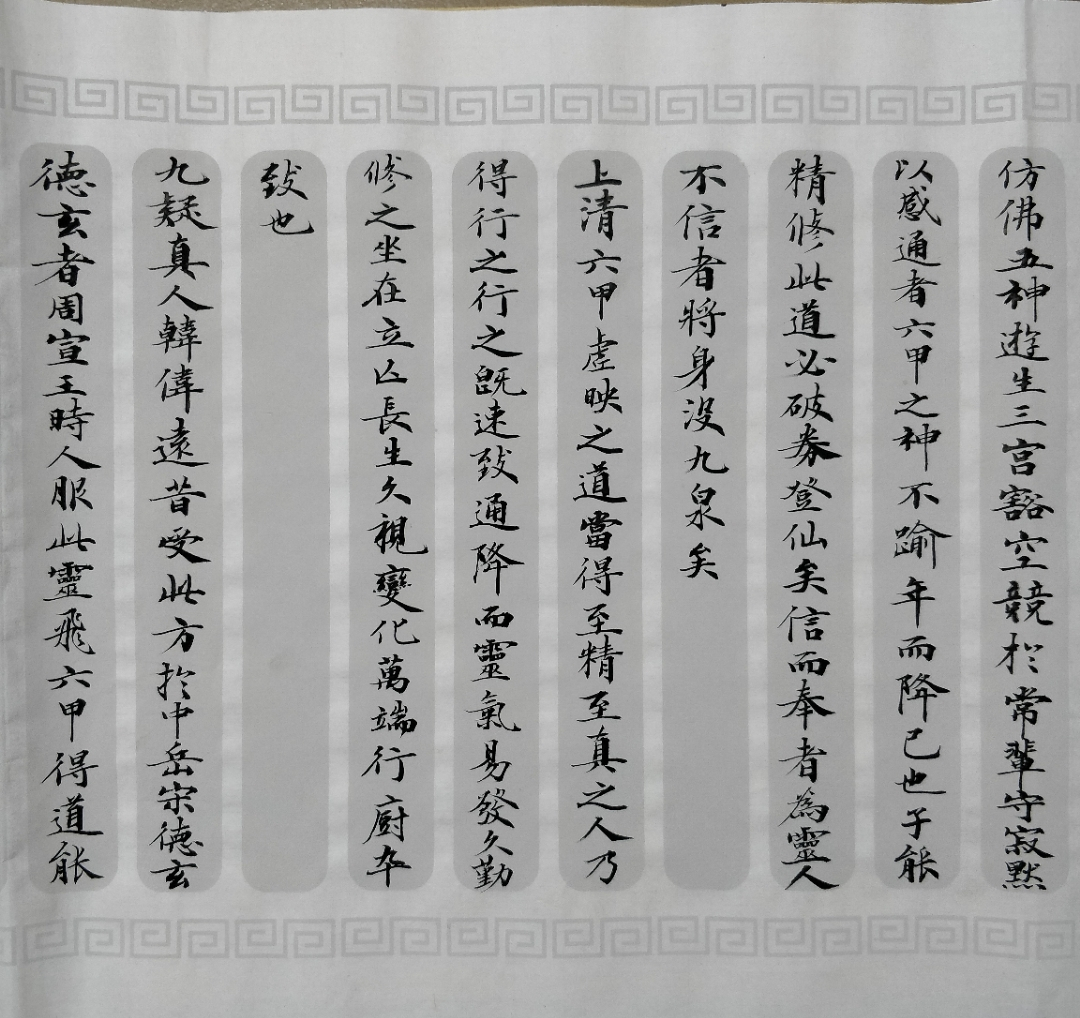 仿佛五神遊生三宫豁空競於常輩守寂默
以感通者六甲之神不踰年而降已也子能
精修此道必破券登仙矣信而奉者為靈人
不信者將身没九泉矣
上清六甲虚映之道當得至精至真之人乃
得行之行之既速致通降而靈氣易發久勤
修之坐在立亾長生久視變化萬端行廚卒
致也
九疑真人韓偉遠昔受此方於中岳宋德玄
德玄者周宣王時人服此靈飛六甲得道能